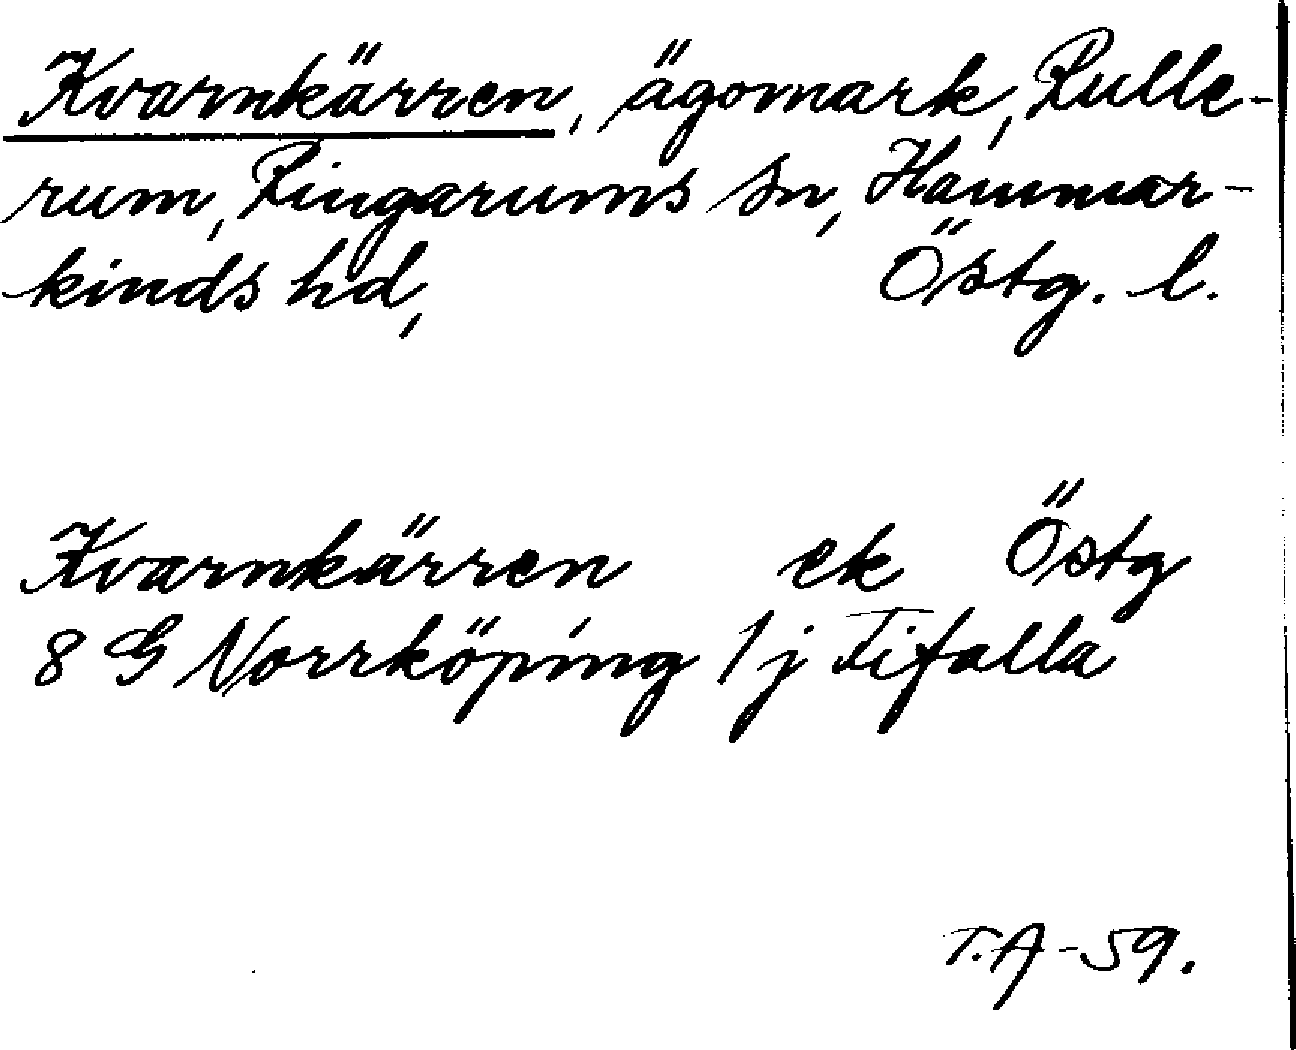 Kvarnkärren, ägomark, Rulle-
rum, Ringarums sn, Hammar-
kinds hd, Östg. l.
Kvarnkärren ek Östg
8 G Norrköping 1 j Tifalla
T.A -59.